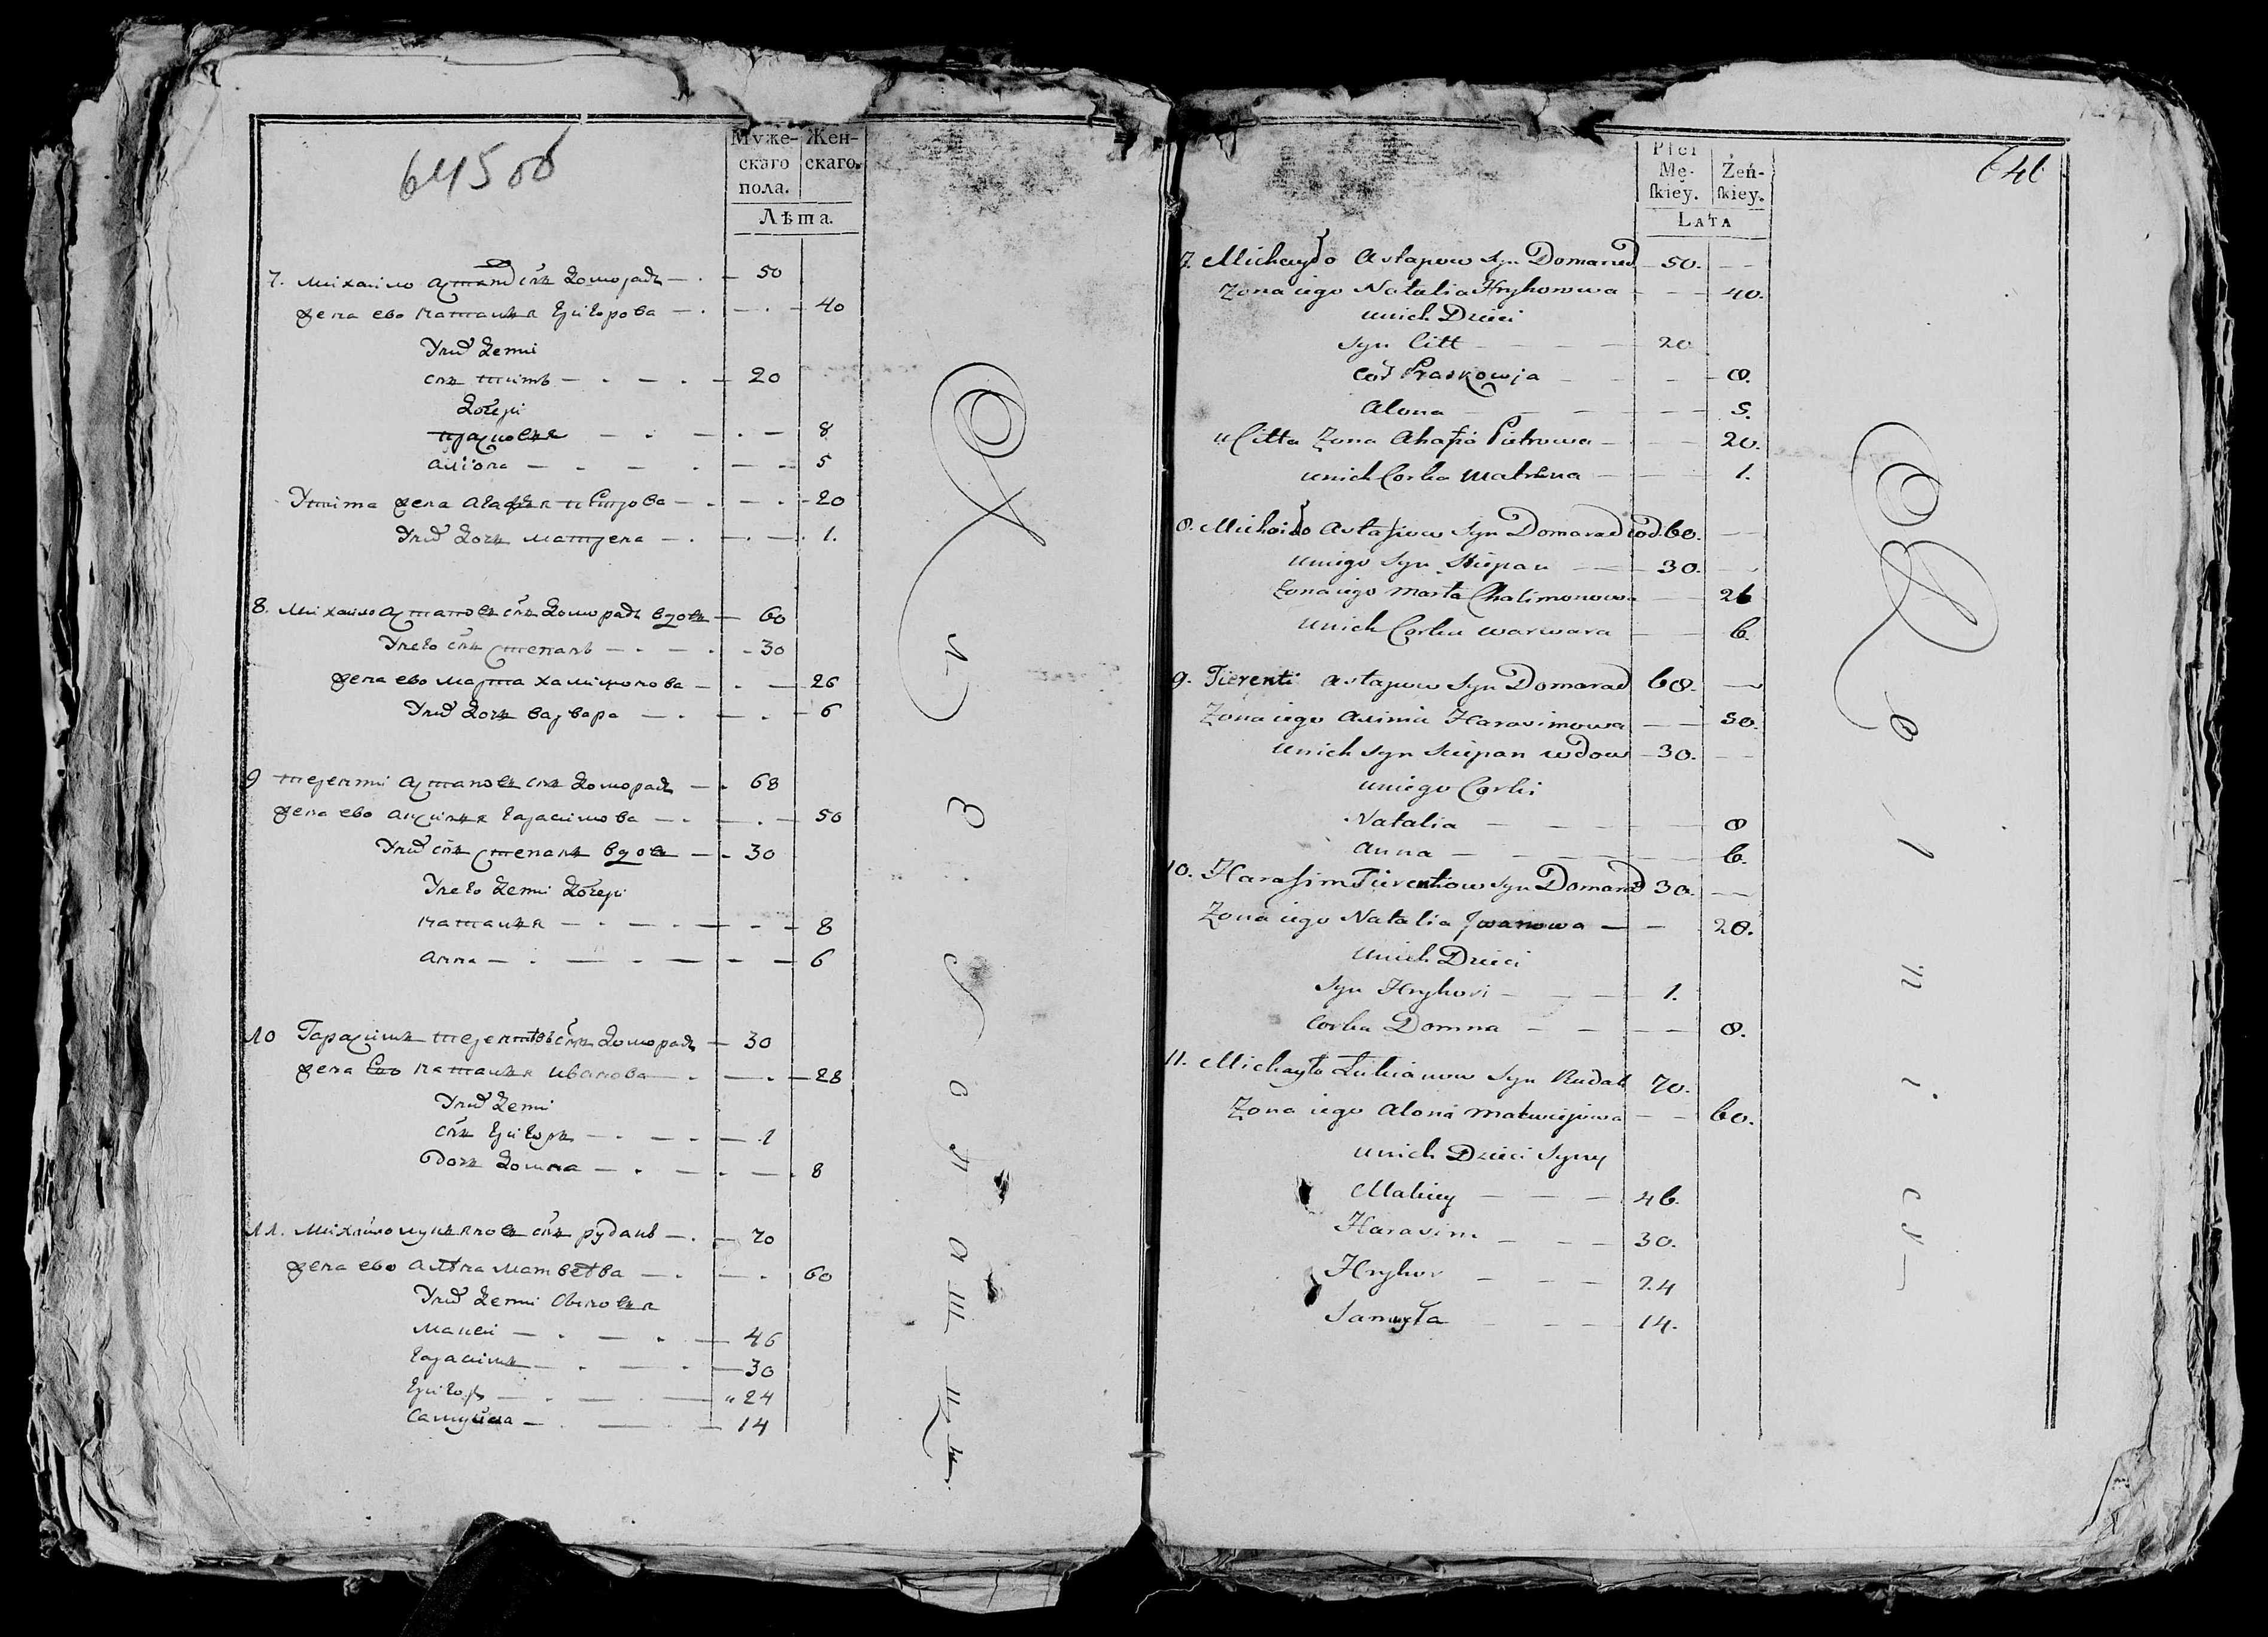 645 об
Муже-
скаго
пола.
Жен-
скаго.
Лѣта.
7. Михаило Астапо снъ Доморадъ 50
жена ево наталья григорова 40
У них дети
снъ титъ 20
дочери
прасковья 8
алiона 5
У тита жена агафья петрова 20
У них дочь матрена 1.
8. Михаило астаповъ снъ доморадъ вдовъ 60
У него снъ степанъ 30
жена ево марта халимонова 26
У них дочь варвара 6
9 терентий астаповъ снъ доморадъ 68
жена ево аксинья гарасимова 50
У них снъ степанъ вдовъ 30
У него дети дочери
наталья 8
анна 6
10 Гарасимъ терентьевъ снъ доморадъ 30
жена ево наталья иванова 28
У них дети
снъ григоръ 1
дочь домна 8
11. Михайло лукьяновъ снъ рудакъ 70
жена ево алена матвеева 60
У них дети сыновья
макей 46
гарасимъ 30
григоръ 24
самуйла 14
Płci
Mę-
ſkiey.
Żeń-
ſkiey.
LATA
7. Michayło Astapow Syn Domarad 50.
Zona iego Natalia Hryhorowa 40.
unich Dzieci
Syn Citt 20
Praskowja 8.
Alona 5.
u Citta Zona Ahafia Pietrowa 20.
unich Corka Matrena 1.
8. Michaiło Astapow Syn Domarad wd. 60.
uniego Syn Stiepan 30.
Zona iego Marta Chalimonowa 26
unich Corka warwara 6.
9. Tierenti Astapow Syn Domarad 68.
Zona iego Axinia Harasimowa 50.
unich Syn Sciepan wdow 30.
uniego Corki
Natalia 8
Anna 6.
10. Harasim Tierentiow Syn Domarad 30.
Zona iego Natalia Jwanowa 28.
unich Dzieci
Syn Hryhori 1.
Corka Domna 8.
11. Michayło Łukianow Syn Rudak 70.
Zona iego Alona Matwiejewa 60.
unich Dzieci Syny
Makiey 46.
Harasim 30.
Hryhor 24
Samuyła 14.